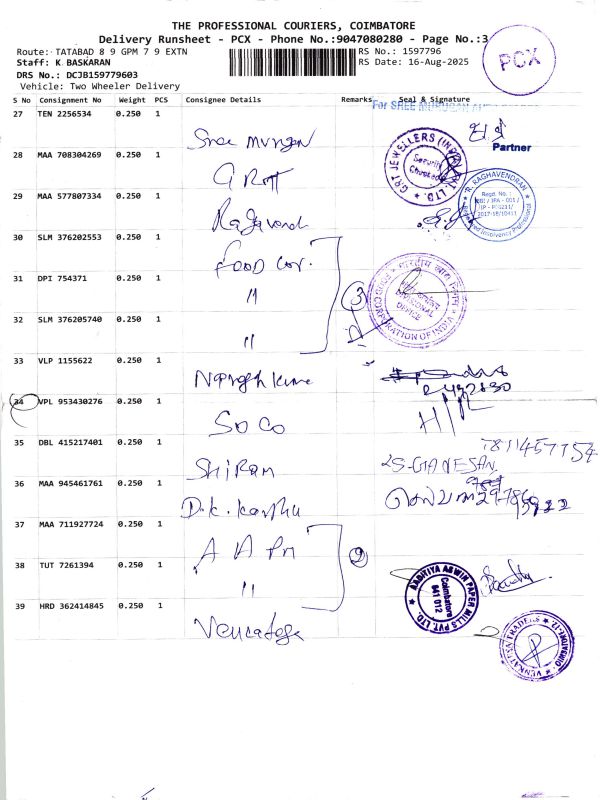 THE PROFESSIONAL COURIERS, COIMBATORE
Delivery Runsheet - PCX - Phone No.:9047080280 - Page No.:3
PCX
Route: TATABAD 8 9 GPM 7 9 EXTN
RS No.: 1597796
Staff: K BASKARAN
RS Date: 16-Aug-2025
DRS No.: DCJB159779603
Vehicle: Two Wheeler Delivery
S No Consignment No Weight PCS Consignee Details Remarks Seal & Signature
For SREE MURUGAN
27 TEN 2256534 0.250 1
Sree murugan
Partner
28 MAA 708304269 0.250 1
G.P.T JEWELLERS (INDIA) PVT. LTD.
Security
29 MAA 577807334 0.250 1
R. RAGHAVENDRAN
Regd. No. :
2017-18/10411
Registered Insolvency Professional
30 SLM 376202553 0.250 1
Food Cor.
31 DPI 754371 0.250 1
"
3
FOOD CORPORATION OF INDIA
DIVISIONAL
OFFICE
32 SLM 376205740 0.250 1
"
33 VLP 1155622 0.250 1
34 VPL 953430276 0.250 1
SOCO
35 DBL 415217401 0.250 1
7811457754
Shiram
S-GANESAN
36 MAA 945461761 0.250 1
D.K.
37 MAA 711927724 0.250 1
38 TUT 7261394 0.250 1
"
2
AADITIYA ASWIN PAPER MILLS PVT. LTD.
Coimbatore
641 012
39 HRD 362414845 0.250 1
VENKATESA TRADERS
COIMBATORE-12